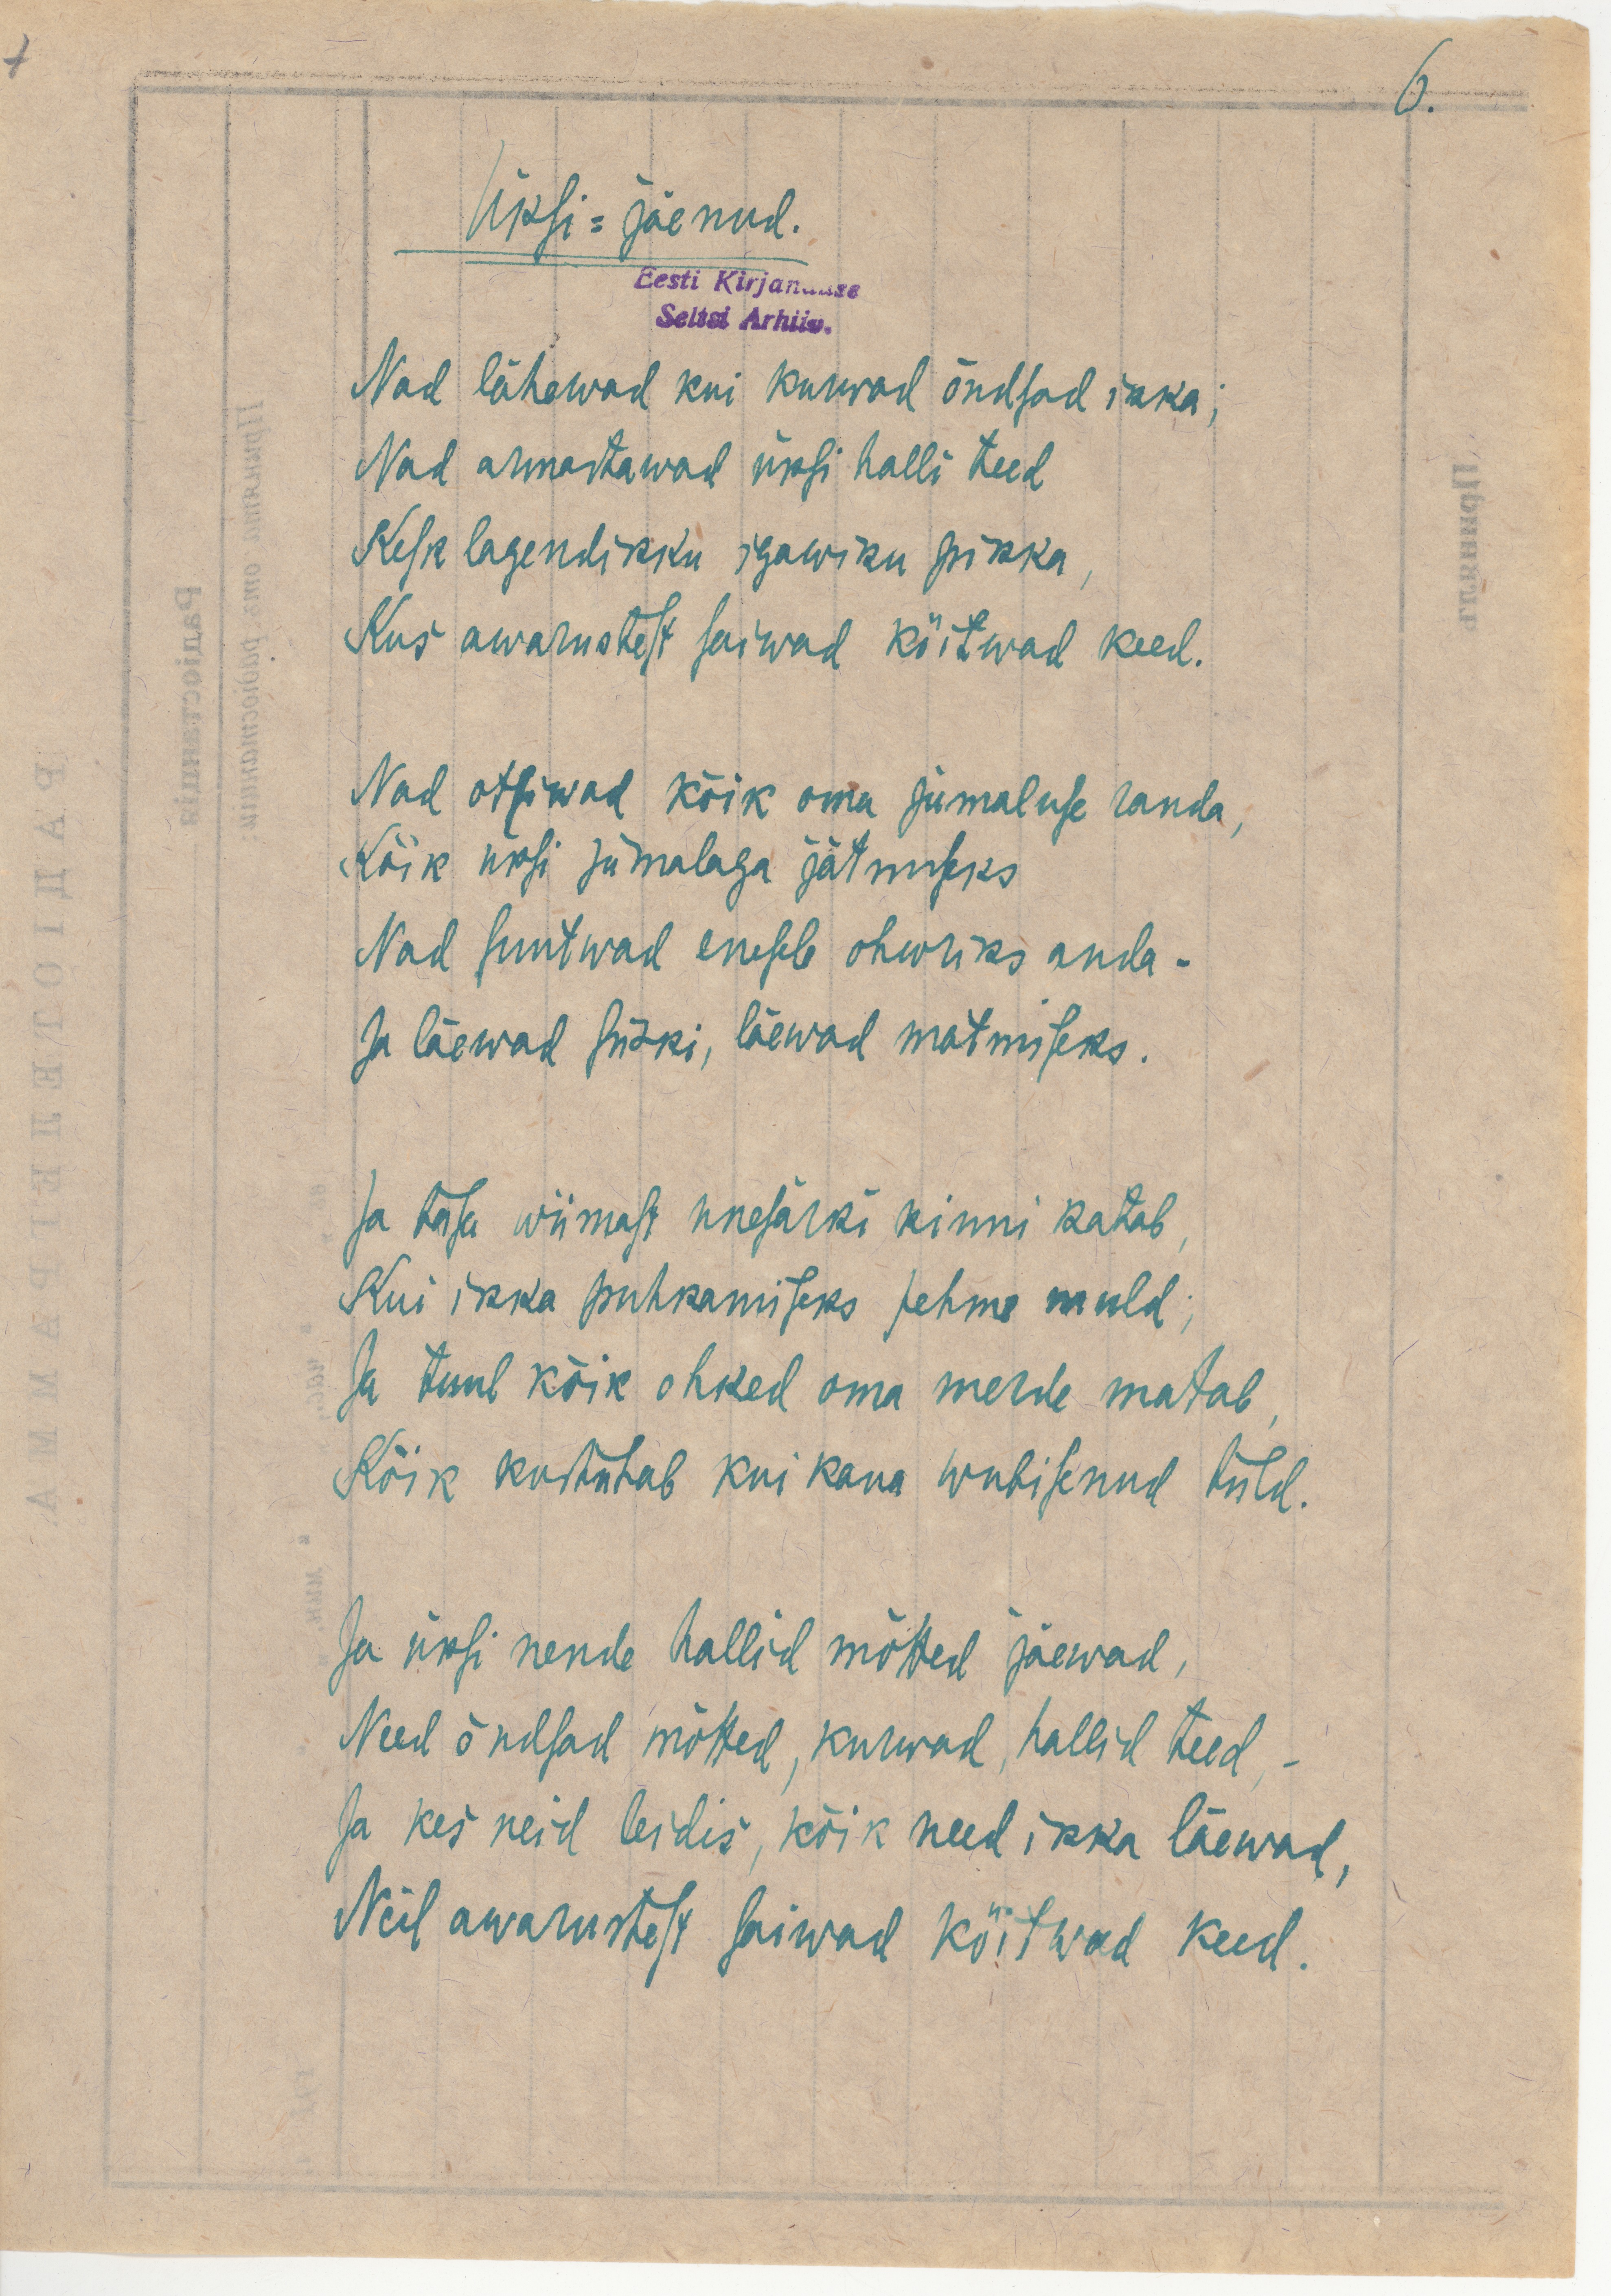 6.
Üksi=jäenud.
Eesti Kirjanduse
Seltsi Arhiiv.
Nad lähewad kui kurwad õndsad ikka;
Nad armastawad üksi halli teed
Kesk lagendikku igawiku pikka,
Kus awarustest saiwad köitwad keed.
Nad otsiwad kõik oma jumaluse randa,
Kõik üksi jumalaga jätmiseks
Nad suutwad enesele ohwriks anda -
Ja läewad siiski, läewad matmiseks.
Ja tasa wiimast unesärki kinni katab,
Kui ikka puhkamiseks pehme muld;
Ja tuul kõik ohked oma merde matab,
Kõik kustutab kui kaua wubisenud tuld.
Ja üksi nende hallid mõtted jäewad,
Need õndsad mõtted, kurwad, hallid teed, -
Ja kes neid leidis, kõik need ikka läewad,
Neil awarustest saiwad köitwad keed.
РАДІОТЕЛЕГРАММА
Радіостанція
Принята отъ радіостанціи